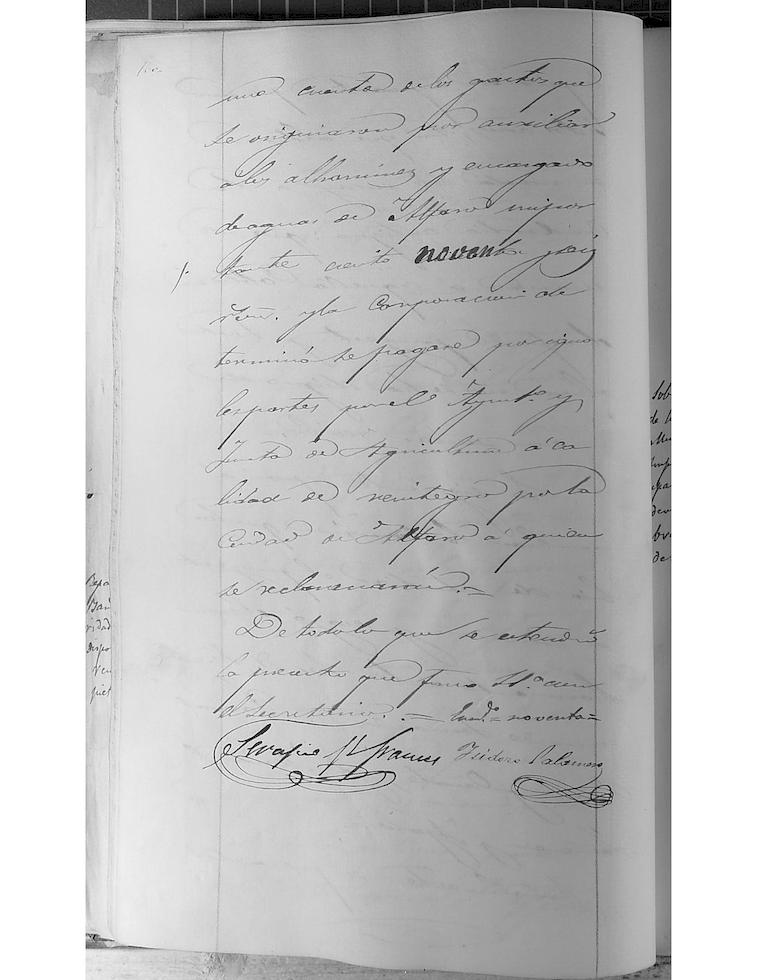 una cuenta de los gastos que
se originaron por auxiliar
á los alhamines y encargado
de aguas de Alfaro impor
tante ciento noventa y seis
r.von. y la Corporacion de
terminó se pagase por igua
les partes por el Ayunt.o y
Junta de Agricultura á ca
lidad de reintegro por la
Ciudad de Alfaro á quien
se reclamará.=
De todo lo que se estendió
la presente que firma S.S.a con
el Secretario.= Enm.do= noventa=
Serafin Isidoro Palomero